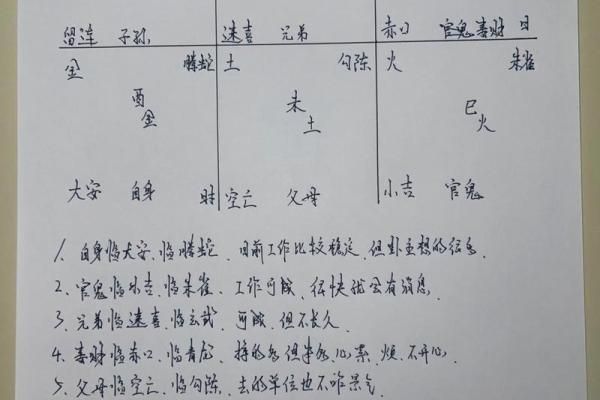 留连 子孙 速喜 兄弟 赤口 官鬼妻财 日
金 腾蛇 土 勾陈 火 朱雀
酉 未 巳
金 土 火
大安 自身 时 空亡 父母 小吉 官鬼
1、自身临大安、临腾蛇、目前工作比较稳定,但卦主想的很多.
2、官鬼临小吉、临朱雀、工作可成,很快就会有消息.
3、兄弟临速喜、临玄武、可成、但不长久.
4、妻财临赤口、临青龙、挣的多但事多、心累、烦、不开心.
5、父母临空亡、临勾陈、去的单位也不咋景气.